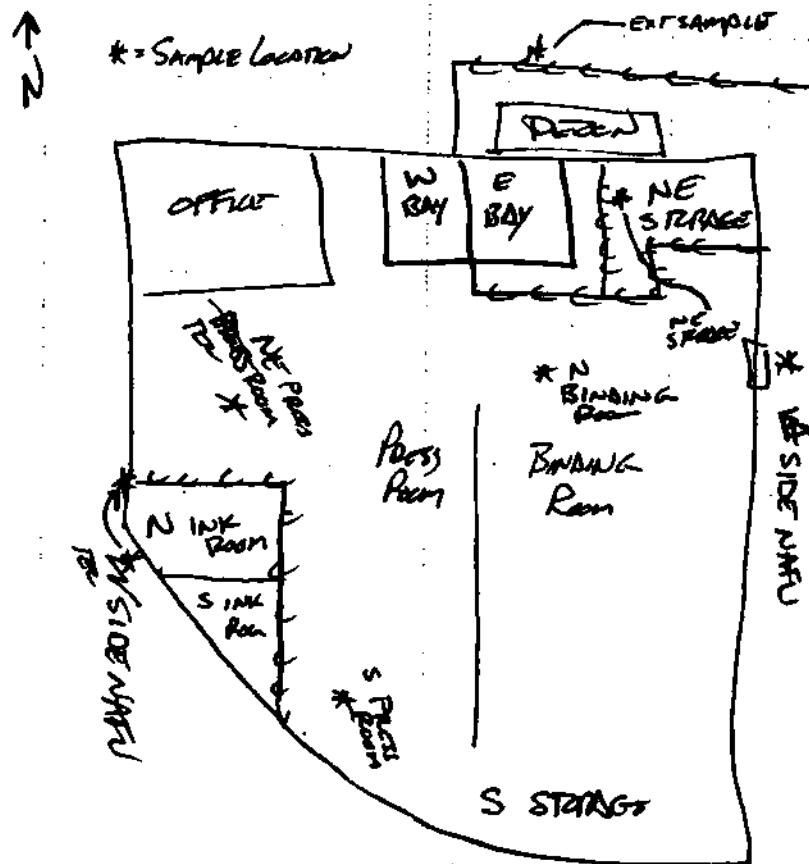 N
* = SAMPLE LOCATION
EXT SAMPLE
DECON
OFFICE
W
BAY
E
BAY
* NE
STORAGE
NE
STORAGE
NE PRESS
ROOM
*
* N
BINDING
ROOM
*
SIDE NAFU
PRESS
ROOM
BINDING
ROOM
N INK
ROOM
S INK
ROOM
W/SIDE NAFU
S PRESS
* ROOM
S STORAGE